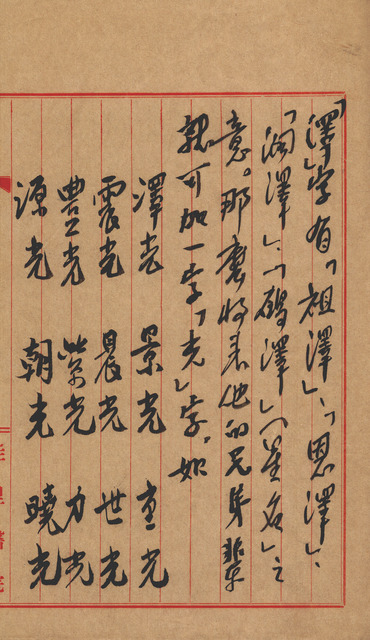 「澤」字有「祖澤」、「恩澤」、
「潤澤」、「碭澤」(星名)之
意。那麼將來他的兄弟輩
就可加一字「光」字,如
澤光 景光 重光
震光 晨光 世光
豐光 榮光 力光
源光 朝光 曉光